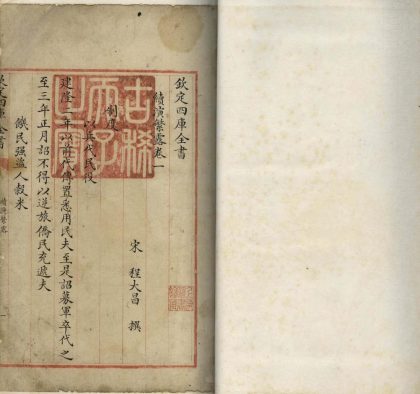 欽定四庫全書
續演繁露卷一
宋 程大昌 撰
制度
以兵代民役
建隆二年以前代傳置悉用民夫至是詔募軍卒代之
至三年正月詔不得以逆旅僑民充遞夫
饑民强盗人穀米
欽定四庫全書